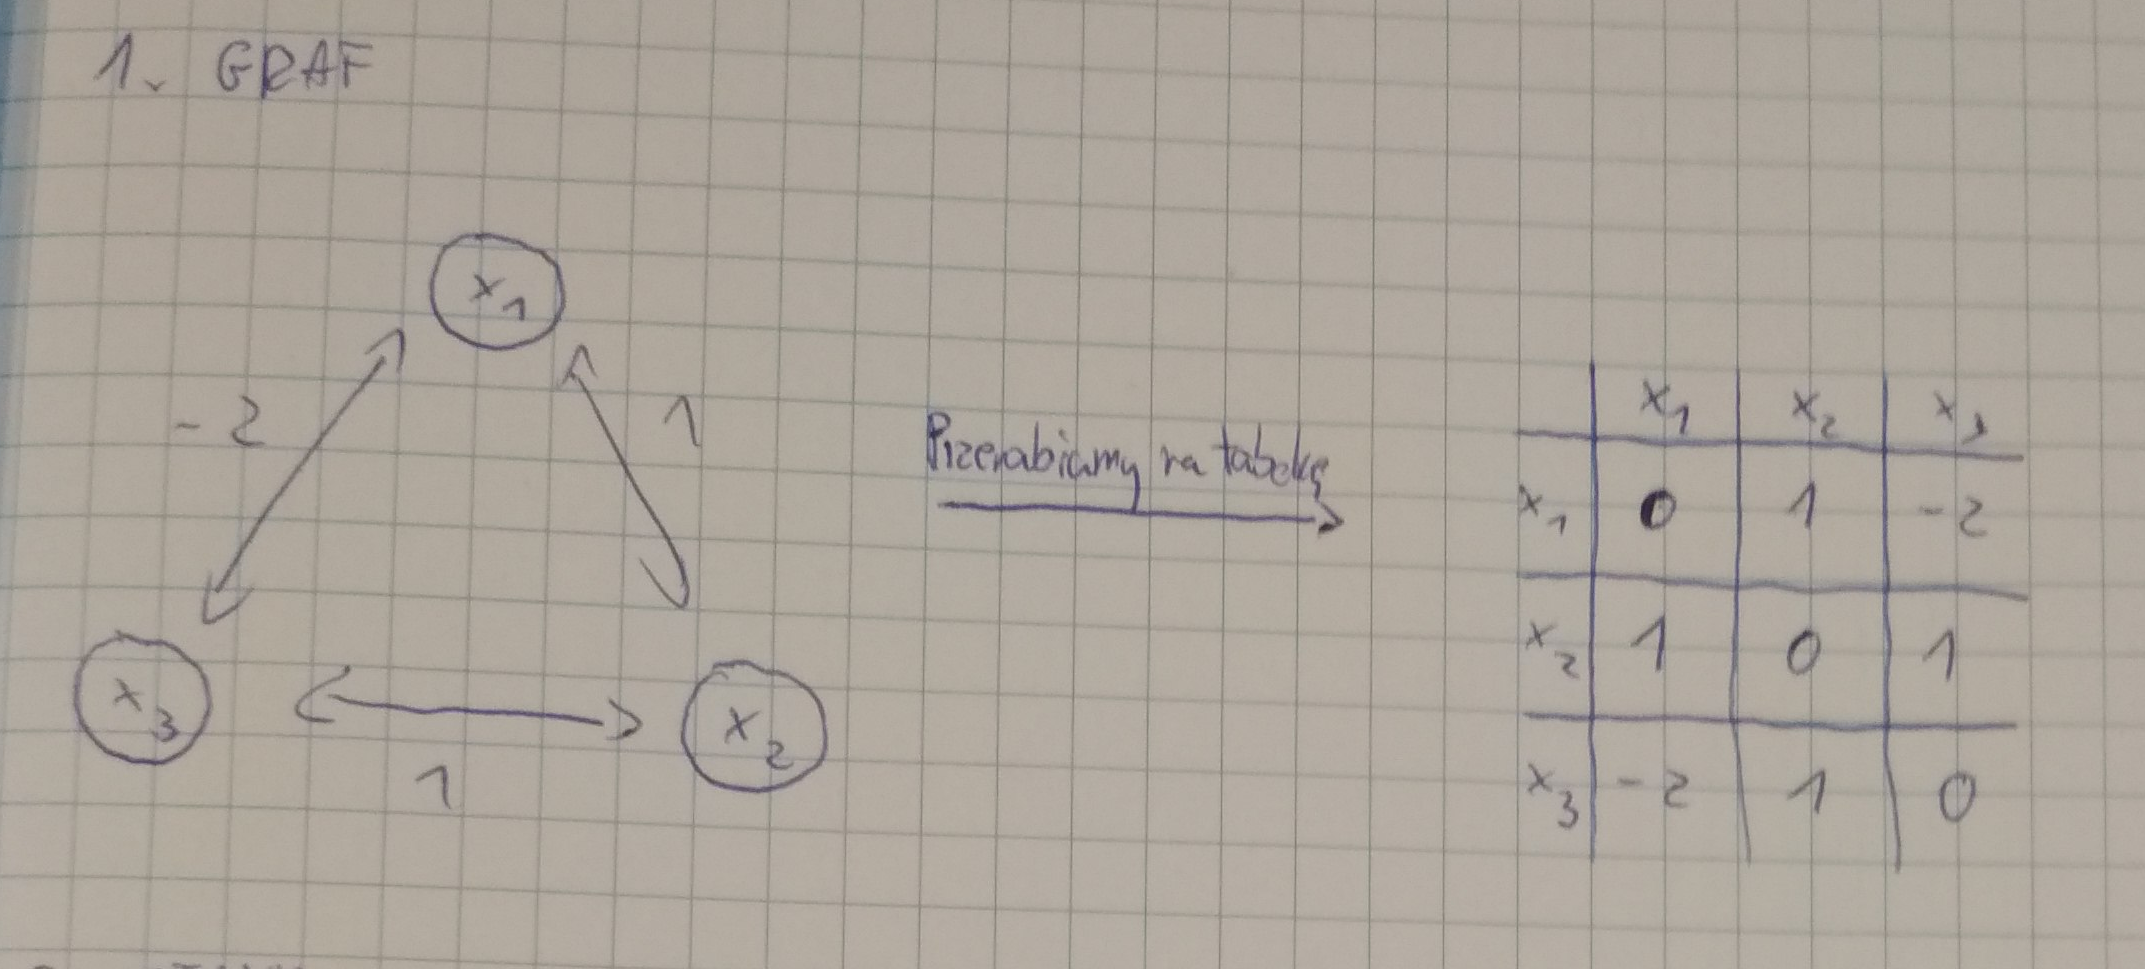 1. GRAF
x1
-2
1
x3
x2
1
Przerabiamy na tabelkę
x1 x2 x3
x1 0 1 -2
x2 1 0 1
x3 -2 1 0